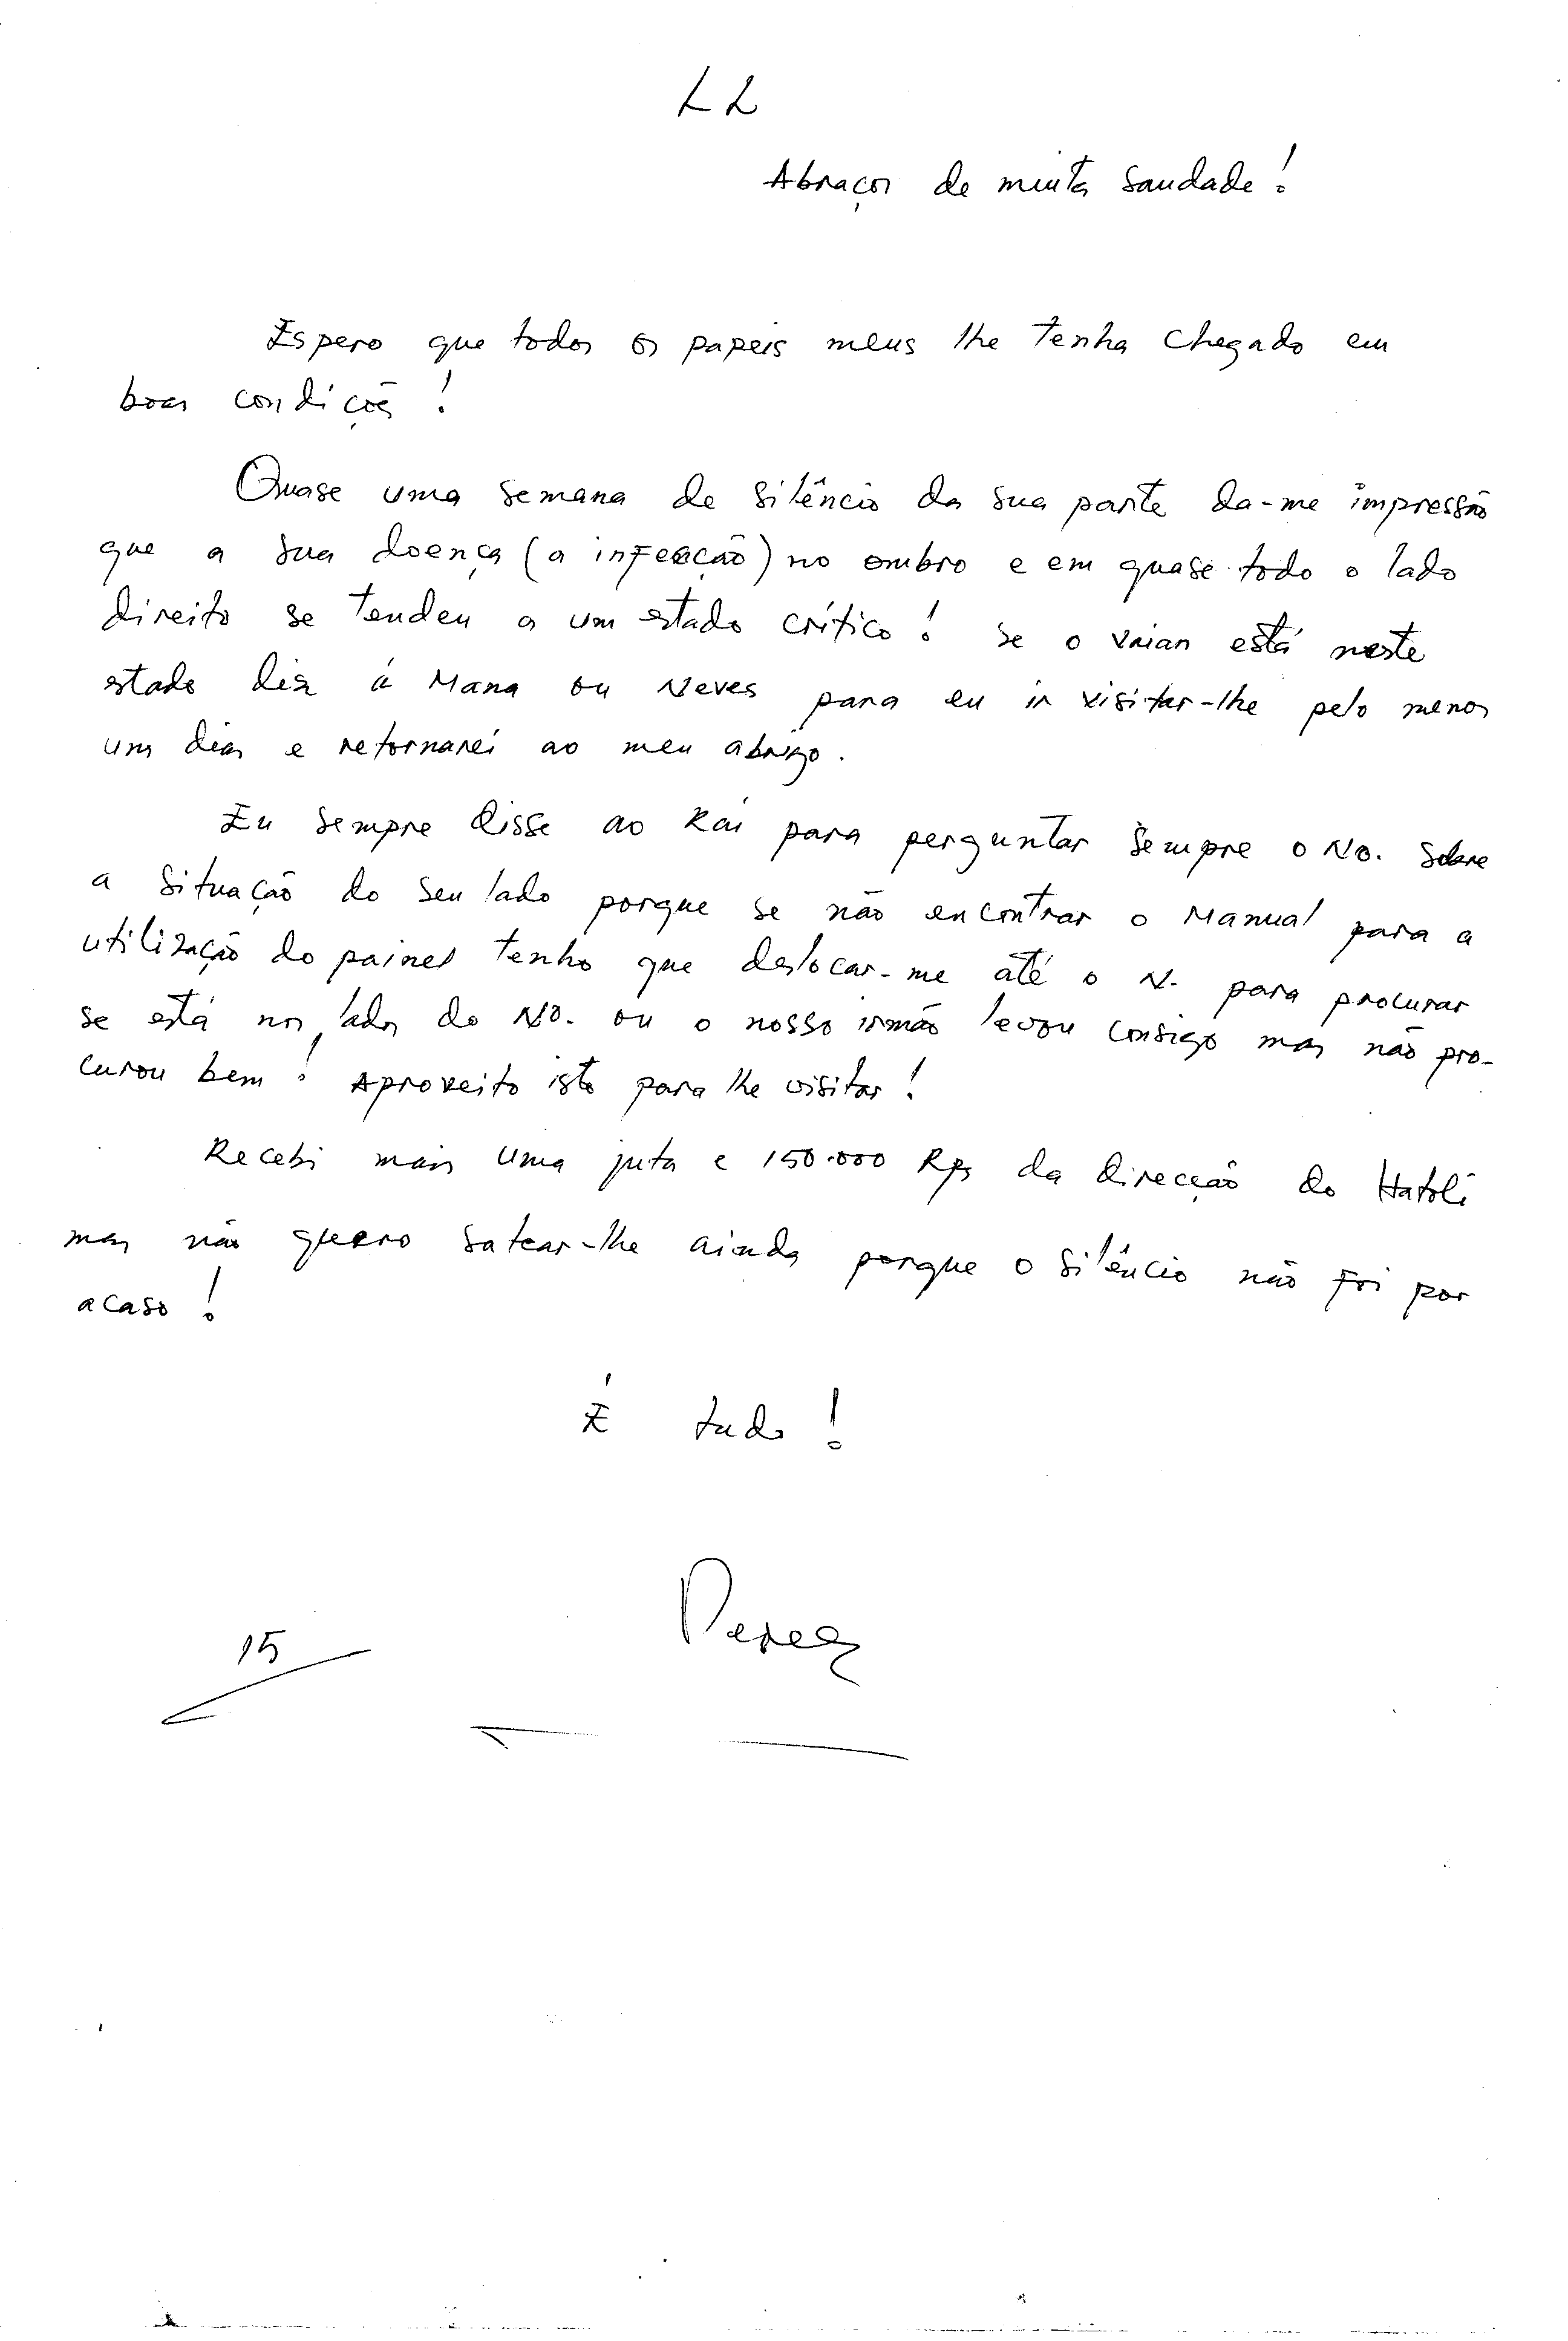 LL
Abraços de muita saudade!
Espero que todos os papeis meus lhe tenha chegado em
boas condições!
Quase uma semana de silêncio da sua parte da-me impressão
que a sua doença (a infecção) no ombro e em quase todo o lado
direito se tendeu a um estado crítico! Se o Vaian está neste
estado diz à Mana ou Neves para eu ir visitar-lhe pelo menos
uns dias e retornarei ao meu abrigo.
Eu sempre disse ao Rai para perguntar sempre o No. sobre
a situação do seu lado porque se não encontrar o Manual para a
utilização do painel tenho que deslocar-me até o N. para procurar
se está nos lados do No. ou o nosso irmão levou consigo mas não pro-
curou bem! Aproveito isto para lhe visitar!
Recebi mais uma juta e 150.000 Rps da direcção do Hatoli
mas não quero satear-lhe ainda porque o silêncio não foi por
acaso!
É tudo!
15